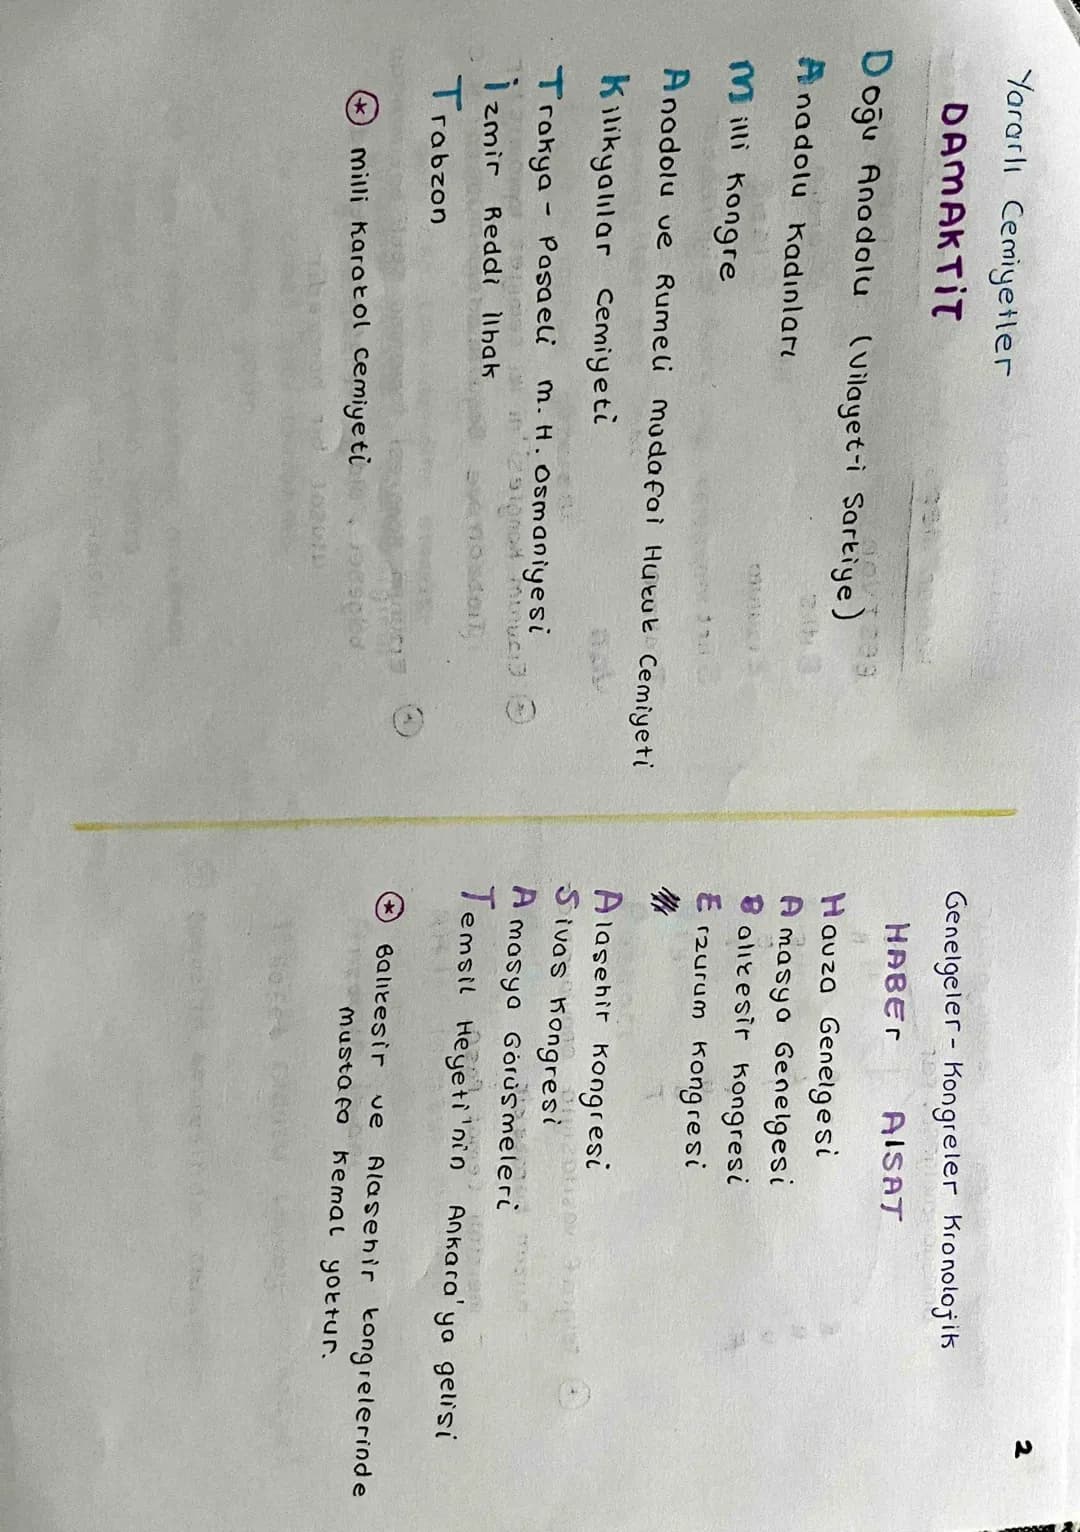 2
Yararlı Cemiyetler
DAMAKTİT
Doğu Anadolu (Vilayet-i Sarkiye)
Anadolu Kadınları
Milli Kongre
Anadolu ve Rumeli mudafai Hukuk Cemiyeti
Kilikyalılar Cemiyeti
Trakya - Pasaeli m. H. Osmaniyesi
İzmir Reddi ilhak
Trabzon
* milli Karakol Cemiyeti
Genelgeler - Kongreler Kronolojik
HABEr AlSAT
Havza Genelgesi
Amasya Genelgesi
Balıkesir Kongresi
Erzurum Kongresi
Alasehir Kongresi
Sivas Kongresi
Amasya Görüşmeleri
Temsil Heyeti'nin Ankara'ya gelisi
* Balıkesir ve Alasehir kongrelerinde
mustafa Kemal yoktur.